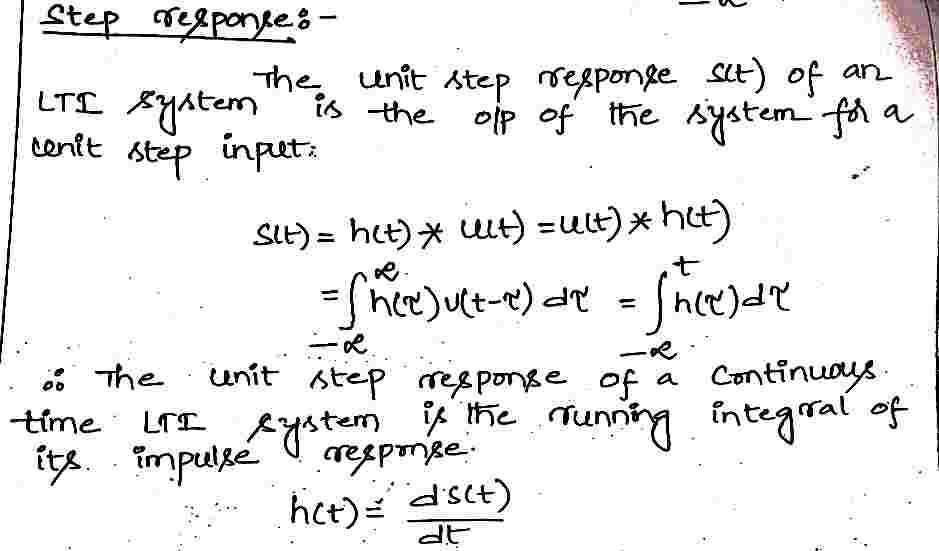 Step response:-
The unit step response s(t) of an
LTI system is the o/p of the system for a
unit step input:
s(t) = h(t) * u(t) = u(t) * h(t)
= ∫_{-∞}^{∞} h(τ) u(t-τ) dτ = ∫_{-∞}^{t} h(τ) dτ
∴ The unit step response of a continuous
time LTI system is the running integral of
its impulse response.
h(t) = ds(t)/dt